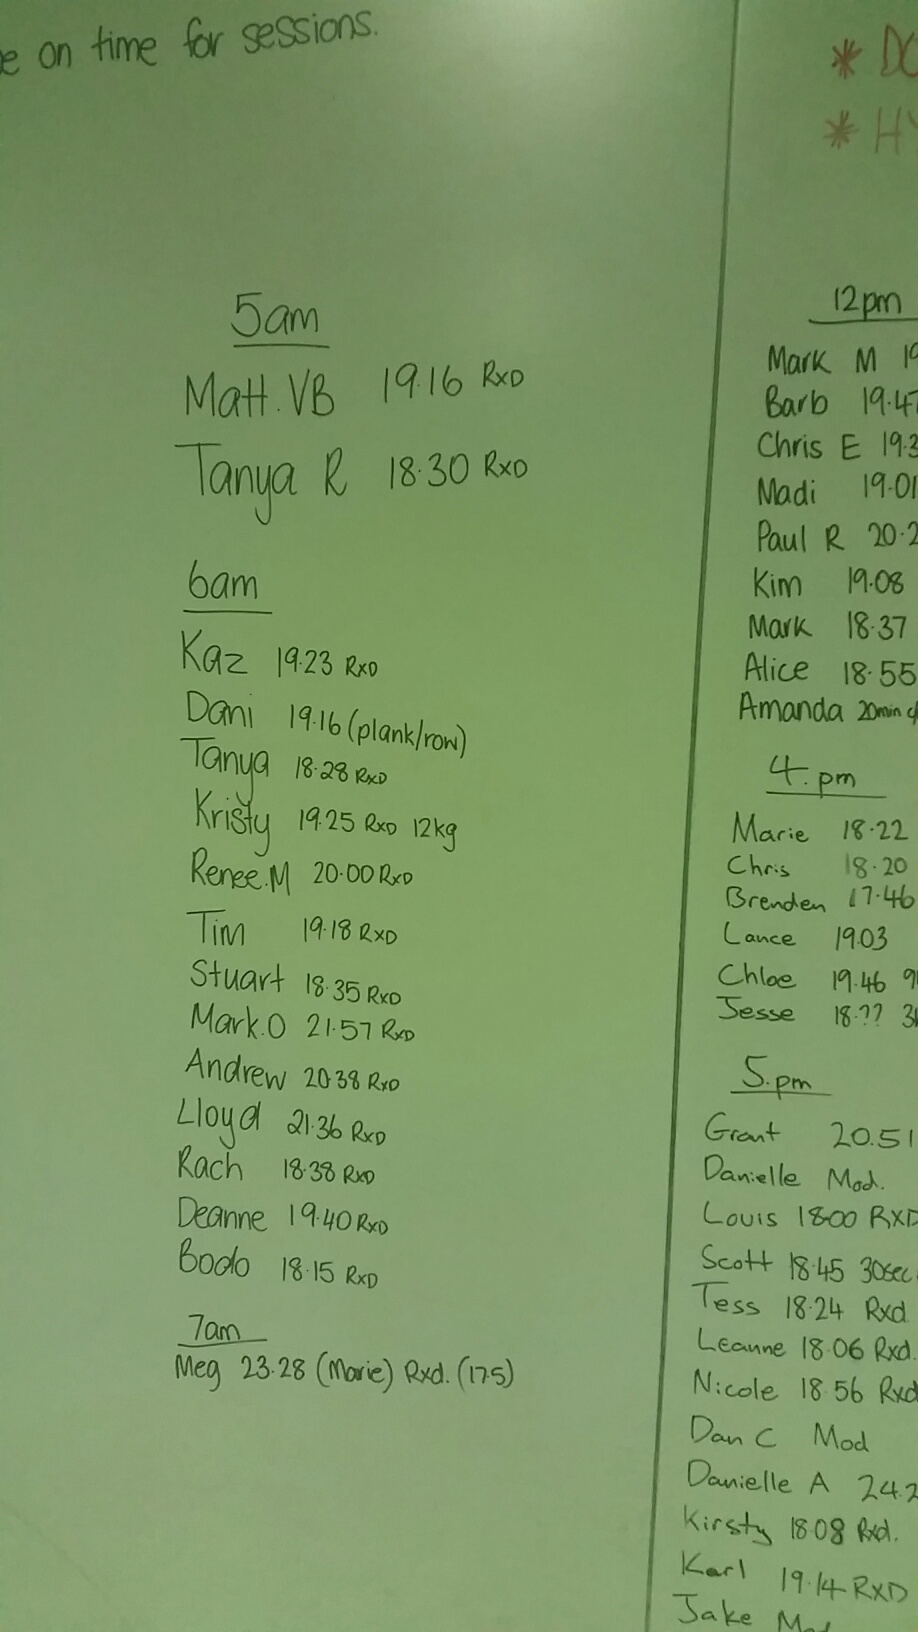 e on time for sessions.
5am
Matt.VB 19.16 RxD
Tanya R 18.30 RxD
6am
Kaz 19.23 RxD
Dani 19.16 (plank/row)
Tanya 18.28 RxD
Kristy 19.25 RxD 12kg
Renee.M 20.00 RxD
Tim 19.18 RxD
Stuart 18.35 RxD
Mark.O 21.57 RxD
Andrew 20.38 RxD
Lloyd 21.36 RxD
Rach 18.38 RxD
Deanne 19.40 RxD
Bodo 18.15 RxD
7am
Meg 23.28 (Marie) Rxd. (17.5)
* DO
* HY
12pm
Mark M 19
Barb 19.47
Chris E 19.3
Madi 19.01
Paul R 20.2
Kim 19.08
Mark 18.37
Alice 18.55
Amanda 20min
4.pm
Marie 18.22
Chris 18.20
Brenden 17.46
Lance 19.03
Chloe 19.46 9
Jesse 18.?? 3
5.pm
Grant 20.51
Danielle Mod.
Louis 18.00 RXD
Scott 18.45 30sec
Tess 18.24 Rxd
Leanne 18.06 Rxd.
Nicole 18.56 Rxd
Dan C Mod
Danielle A 24.2
Kirsty 18.08 Rxd.
Karl 19.14 RXD
Jake Mod